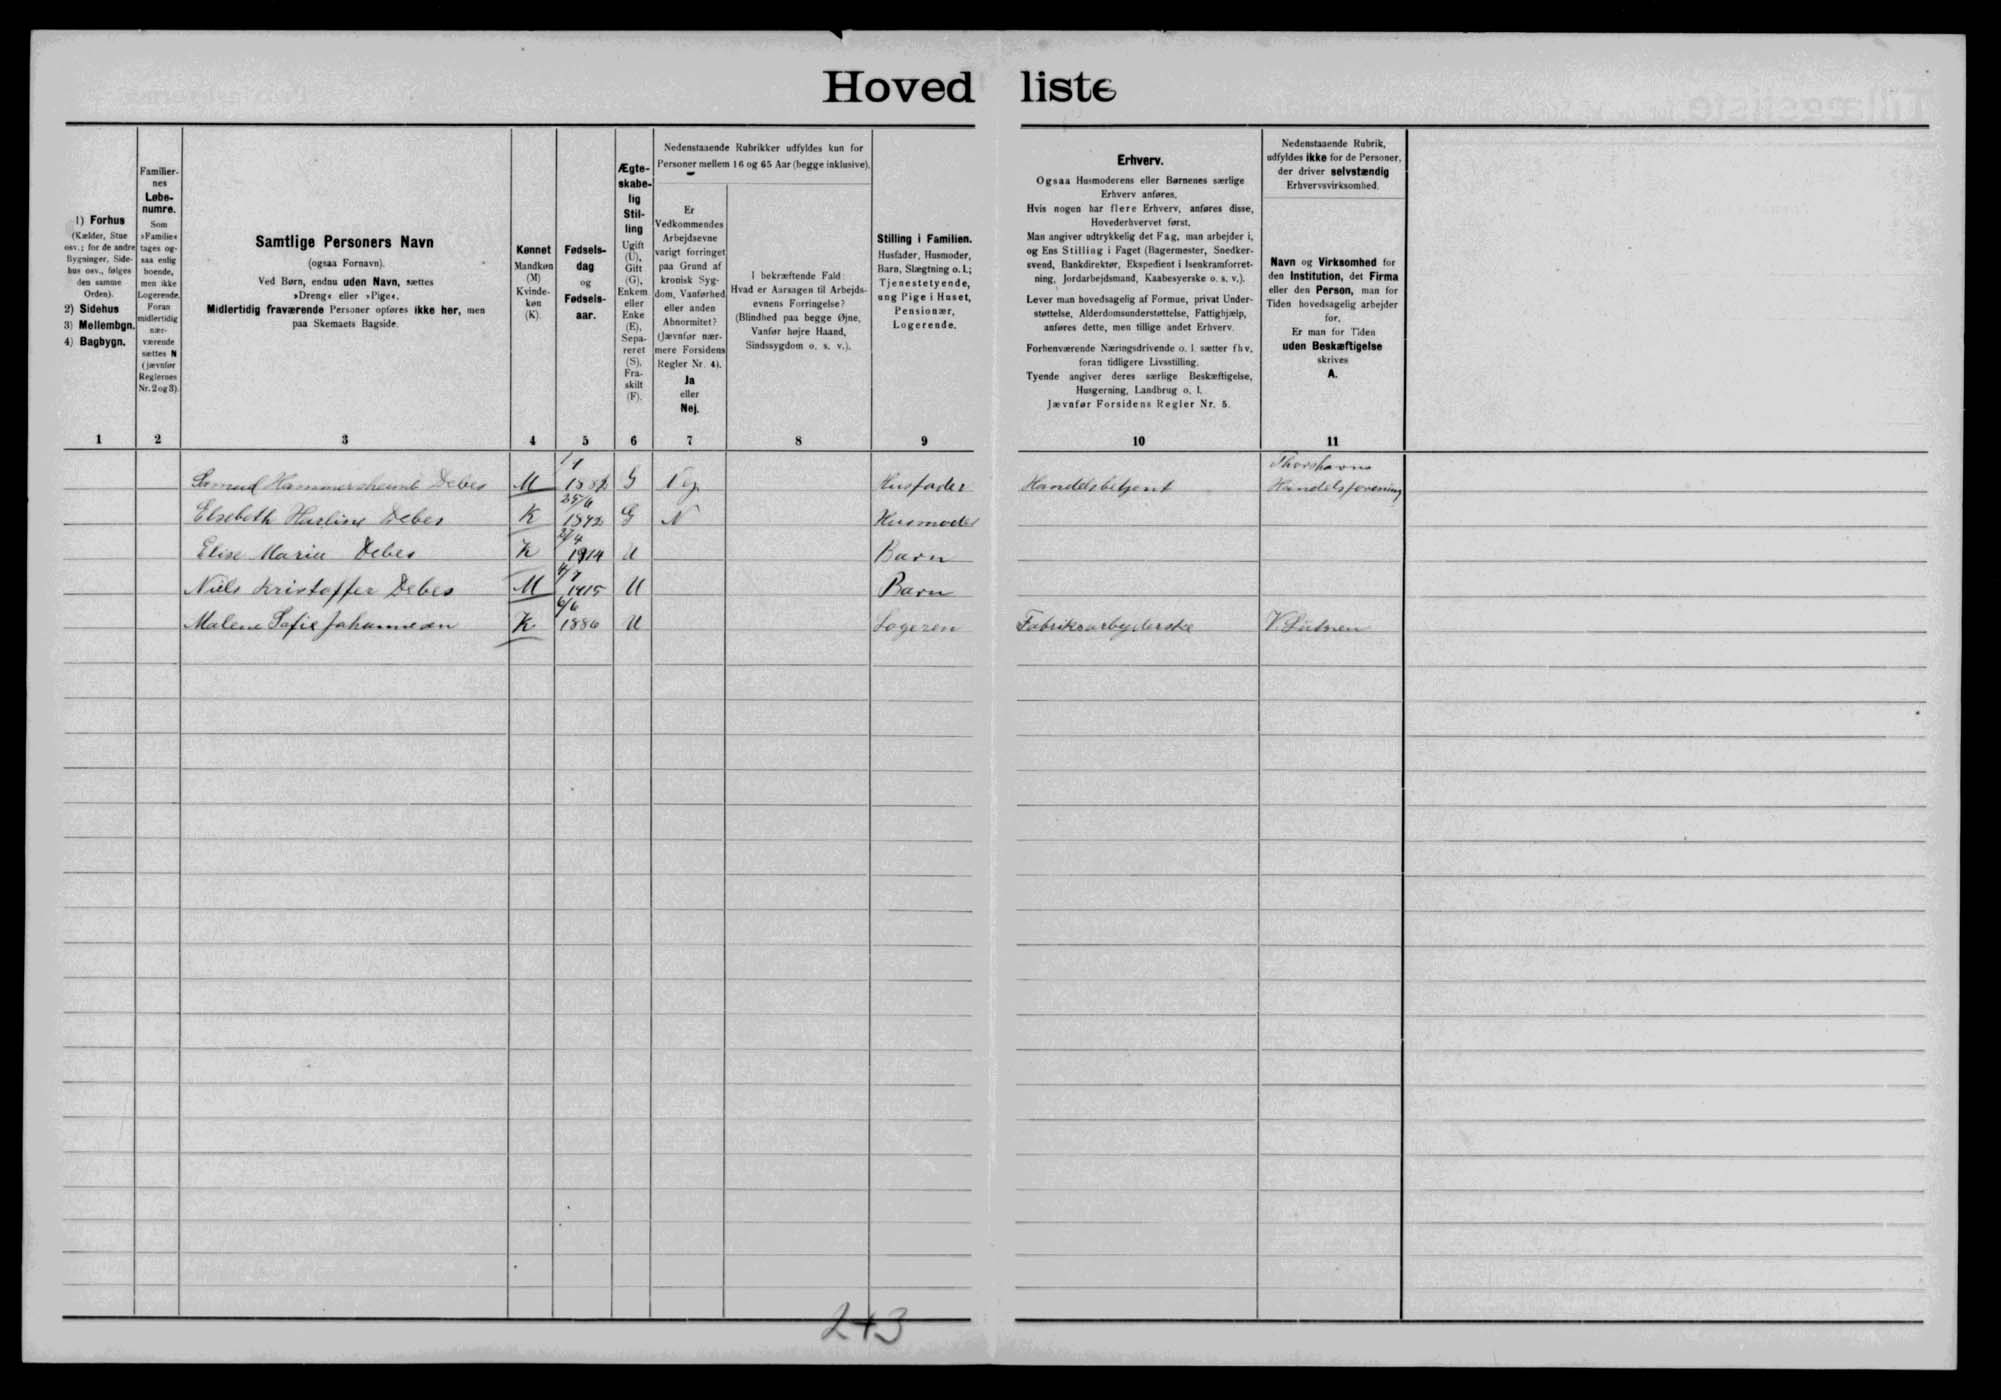 Hoved liste
1) Forhus
(Kælder, Stue
osv.; for de andre
Bygninger, Side-
hus osv., følges
den samme
Orden).
2) Sidehus
3) Mellembgn.
4) Bagbygn.
Familier-
nes
Løbe-
numre.
Som
»Familie«
tages og-
saa enlig
boende,
men ikke
Logerende.
Foran
midlertidig
nær-
værende
sættes N
(jævnfør
Reglernes
Nr. 2 og 3).
Samtlige Personers Navn
(ogsaa Fornavn).
Ved Børn, endnu uden Navn, sættes
»Dreng« eller »Pige«.
Midlertidig fraværende Personer opføres ikke her, men
paa Skemaets Bagside.
Kønnet
Mandkøn
(M)
Kvinde-
køn
(K).
Fødsels-
dag
og
Fødsels-
aar.
Ægte-
skabe-
lig
Stil-
ling
Ugift
(U),
Gift
(G),
Enkem.
eller
Enke
(E),
Sepa-
reret
(S),
Fra-
skilt
(F).
Nedenstaaende Rubrikker udfyldes kun for
Personer mellem 16 og 65 Aar (begge inklusive).
Er
Vedkommendes
Arbejdsevne
varigt forringet
paa Grund af
kronisk Syg-
dom, Vanførhed
eller anden
Abnormitet?
(Jævnfør nær-
mere Forsidens
Regler Nr. 4).
Ja
eller
Nej.
I bekræftende Fald:
Hvad er Aarsagen til Arbejds-
evnens Forringelse?
(Blindhed paa begge Øjne,
Vanfør højre Haand,
Sindssygdom o. s. v.).
Stilling i Familien.
Husfader, Husmoder,
Barn, Slægtning o. l.;
Tjenestetyende,
ung Pige i Huset,
Pensionær,
Logerende.
Erhverv.
Ogsaa Husmoderens eller Børnenes særlige
Erhverv anføres.
Hvis nogen har flere Erhverv, anføres disse,
Hovederhvervet først.
Man angiver udtrykkelig det Fag, man arbejder i,
og Ens Stilling i Faget (Bagermester, Snedker-
svend, Bankdirektør, Ekspedient i Isenkramforret-
ning, Jordarbejdsmand, Kaabesyerske o. s. v.).
Lever man hovedsagelig af Formue, privat Under-
støttelse, Alderdomsunderstøttelse, Fattighjælp,
anføres dette, men tillige andet Erhverv.
Forhenværende Næringsdrivende o. l. sætter fhv.
foran tidligere Livsstilling.
Tyende angiver deres særlige Beskæftigelse,
Husgerning, Landbrug o. l.
Jævnfør Forsidens Regler Nr. 5.
Nedenstaaende Rubrik,
udfyldes ikke for de Personer,
der driver selvstændig
Erhvervsvirksomhed.
Navn og Virksomhed for
den Institution, det Firma
eller den Person, man for
Tiden hovedsagelig arbejder
for.
Er man for Tiden
uden Beskæftigelse
skrives
A.
1 2 3 4 5 6 7 8 9 10 11
Samuel Hammersheimb Debes M 1/1 1882 G Nej Husfader Handelsbetjent Thorshavns Handelsforening
Elsebeth Debes K 25/6 G N Husmoder
Elise Maria Debes K 1914 U Barn
Niels Kristoffer Debes M 1915 U Barn
Malene Sofie Johannesen K 6/6 1886 U Fabriksarbejderske V. Lützen
243